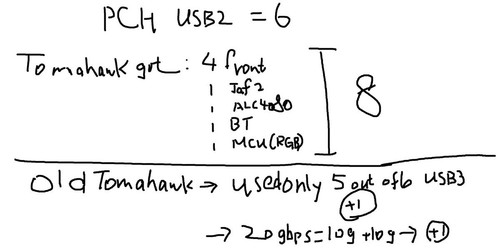 PCH USB2 = 6
Tomahawk got : 4 front
1 Jaf2
1 ALC4080
1 BT
1 MCU(RGB)
8
Old Tomahawk → used only 5 out of 6 USB3
+1
→ 20gbps = 10g + 10g → +1